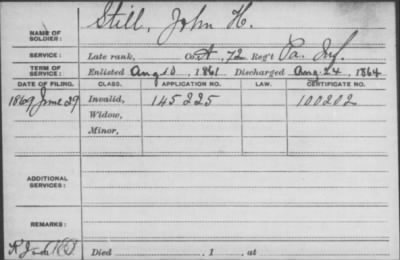 NAME OF SOLDIER: Still, John H.
SERVICE: Late rank, Co. A, 72 Reg't Pa. Inf.
TERM OF SERVICE: Enlisted Aug 10, 1861 Discharged Aug. 24, 1864
DATE OF FILING. CLASS. APPLICATION NO. LAW. CERTIFICATE NO.
1869 June 29 Invalid, 145225 100202
Widow,
Minor,
ADDITIONAL SERVICES:
REMARKS:
Died , 1 , at